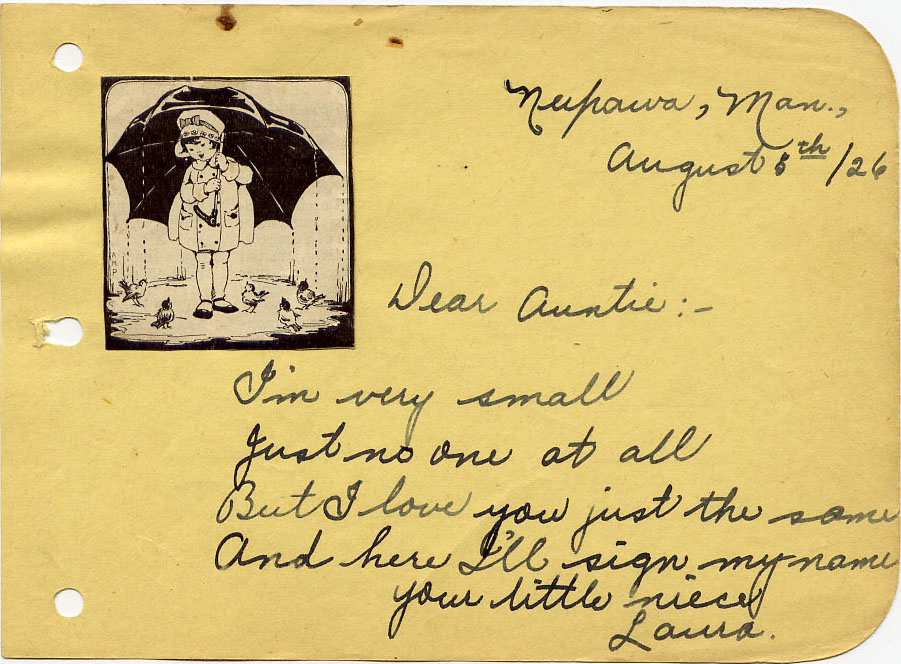 Neepawa, Man.,
August 5th/26
Dear Auntie:-
I'm very small
Just no one at all
But I love you just the same
And here I'll sign my name
your little niece
Laura.
AMP